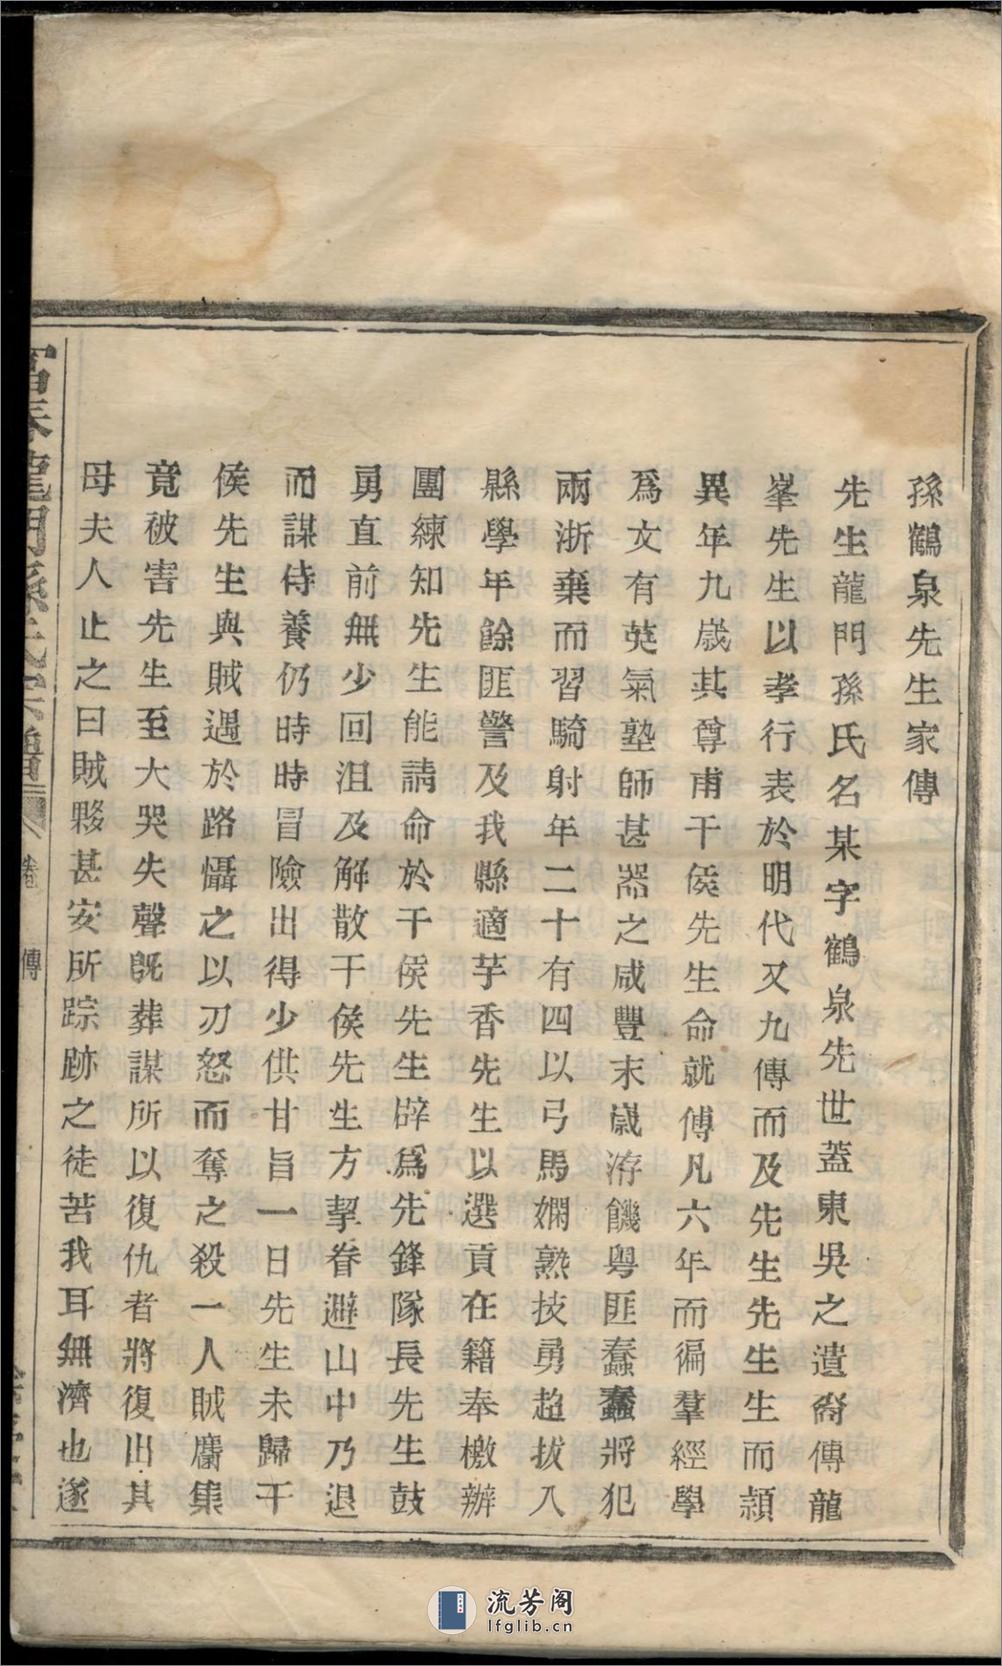 孫鶴泉先生家傳
先生龍門孫氏名某字鶴泉先世蓋東吳之遺裔傳龍
峯先生以孝行表於明代又九傳而及先生先生生而頴
異年九歲其尊甫干侯先生命就傅凡六年而徧羣經學
爲文有英氣塾師甚器之咸豐末歲洊饑粤匪蠢蠢將犯
兩浙棄而習騎射年二十有四以弓馬嫻熟技勇超拔入
縣學年餘匪警及我縣適芋香先生以選貢在籍奉檄辦
團練知先生能請命於干侯先生辟爲先鋒隊長先生鼓
勇直前無少回沮及解散干侯先生方挈眷避山中乃退
而謀侍養仍時時冒險出得少供甘旨一日先生未歸干
侯先生與賊遇於路懾之以刃怒而奪之殺一人賊麕集
竟被害先生至大哭失聲旣葬謀所以復仇者將復出其
母夫人止之曰賊夥甚安所踪跡之徒苦我耳無濟也遂
富春龍門孫氏宗譜
傳
流芳阁
lfglib.cn